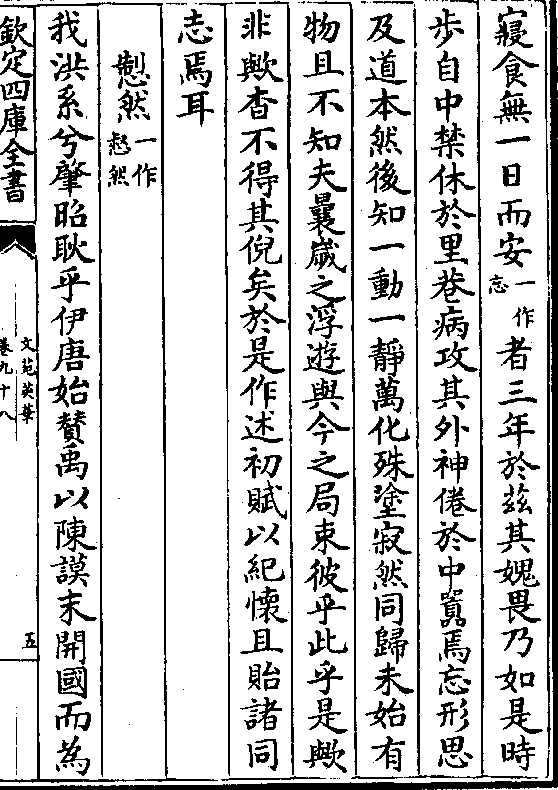 寢食無一日而安一作忘者三年於茲其媿畏乃如是時
步自中禁休於里巷病攻其外神倦於中嚚焉忘形思
及道本然後知一動一靜萬化殊塗寂然同歸未始有
物且不知夫曩歲之浮遊與今之局束彼乎此乎是歟
非歟杳不得其倪矣於是作述初賦以紀懷且貽諸同
志焉耳
㓖然一作愸然
我洪系兮肇昭耿乎伊唐始贊禹以陳謨末開國而為
欽定四庫全書
文苑英華
卷九十八
五